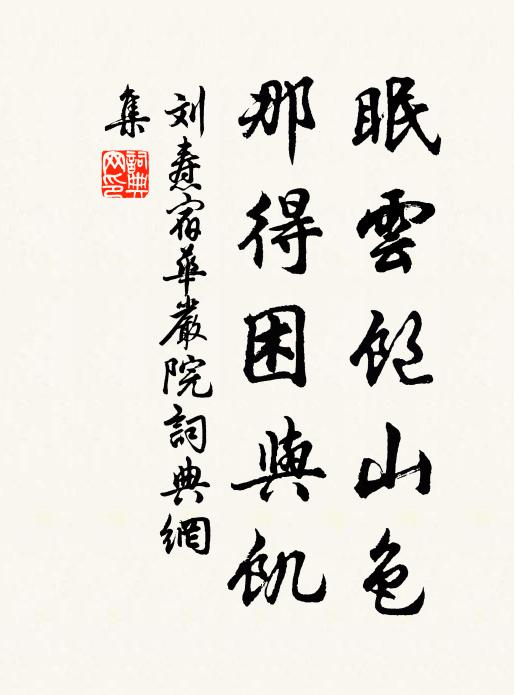 眠雲飽山色
那得困與飢
刘焘宿華嚴院詞典網
集
詞典
网印